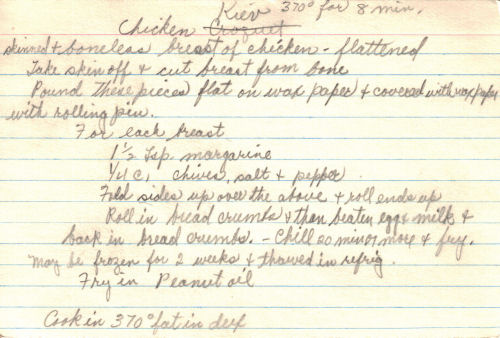 Kiev 370° for 8 min.
Chicken Croquet
skinned + boneless breast of chicken - flattened
Take skin off + cut breast from bone
Pound these pieces flat on wax paper + covered with wax paper
with rolling pin.
For each breast
1 1/2 tsp. margarine
1/4 c, chives, salt + pepper
Fold sides up over the above + roll ends up
Roll in bread crumbs + then beaten egg + milk +
back in bread crumbs. - Chill 20 min or more + fry.
May be frozen for 2 weeks + thawed in refrig.
Fry in Peanut oil
Cook in 370° fat in